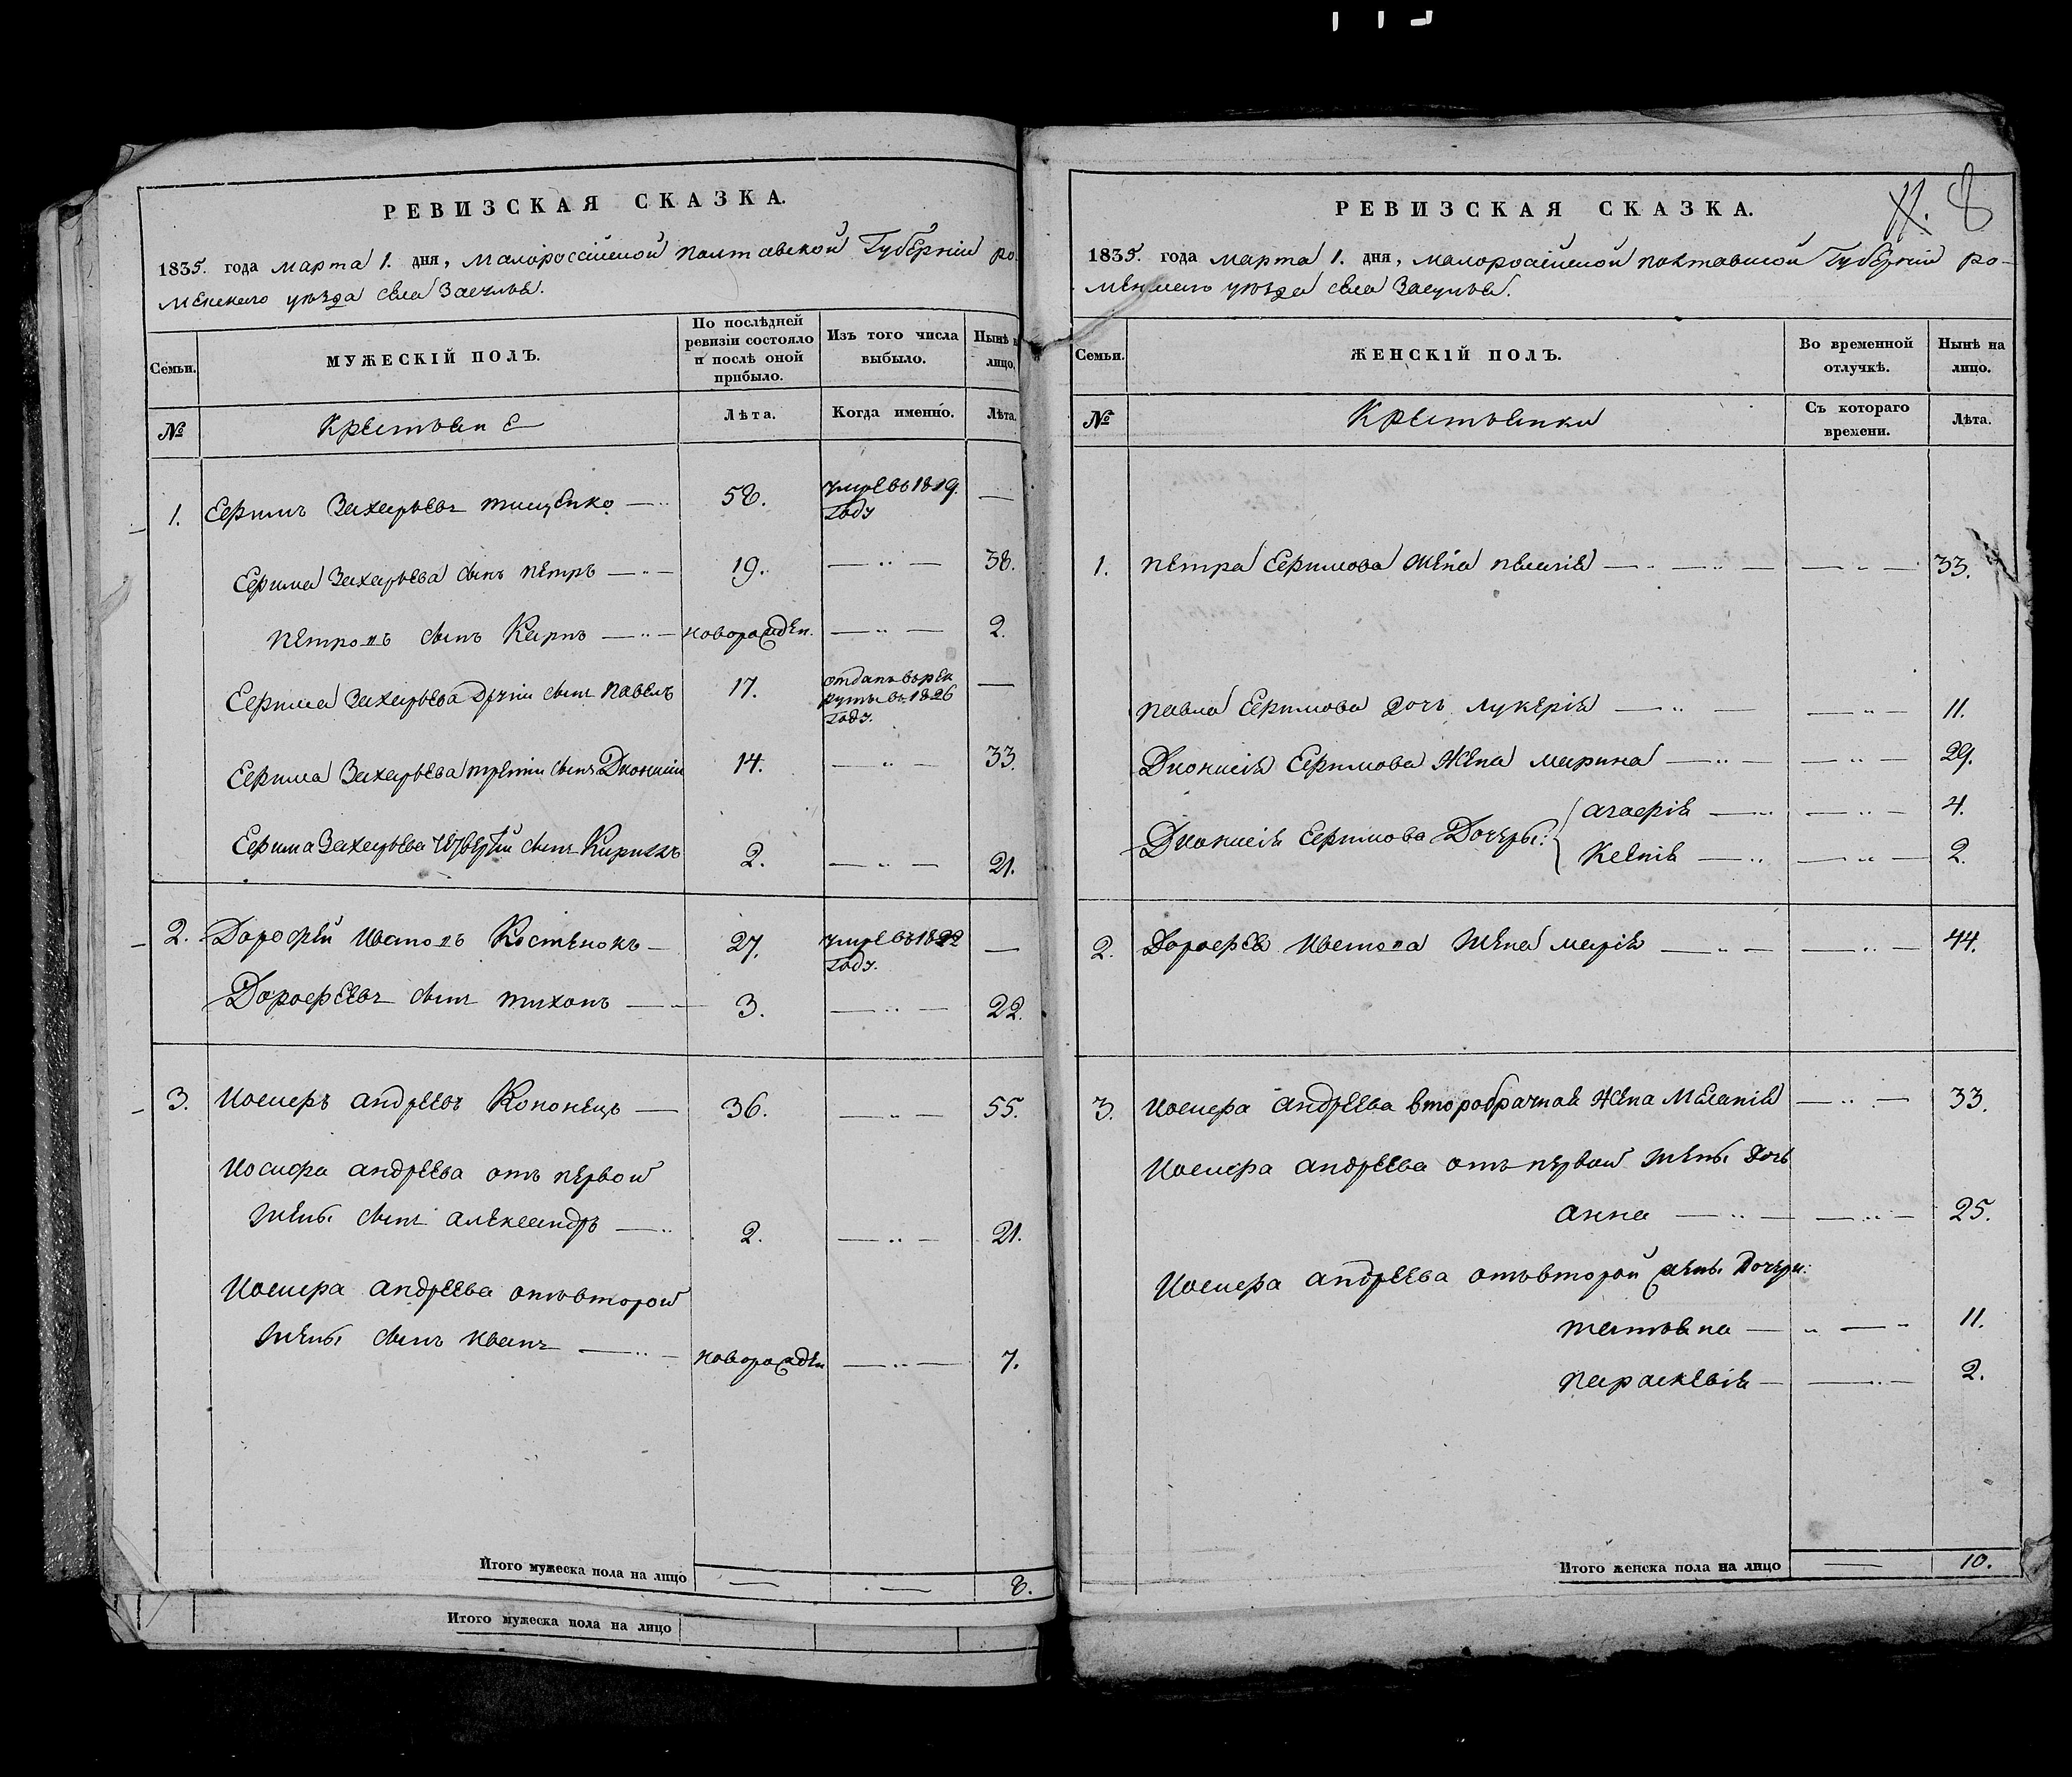 РЕВИЗСКАЯ СКАЗКА.
1835. года марта 1. дня, малоросcійской полтавской Губерніи ро-
менского уѣзда села Засулья.
Семьи.
МУЖЕСКІЙ ПОЛЪ.
По послѣдней ревизіи состояло и послѣ оной прибыло.
Изъ того числа выбыло.
Нынѣ на лицо.
№
Крестьяне
Лѣта.
Когда именно.
Лѣта.
1. Ефимъ Захарьевъ тищенко — 58. умре въ 1819. году —
Ефима Захарьева сынъ петръ — 19. — 38.
петровъ сынъ Карпъ — новорожден. — 2.
Ефима Захарьева другій сынъ павелъ 17. отданъ въ рек
руты въ 1826
году. —
Ефима Захарьева третій сынъ Дионисій 14. — 33.
Ефима Захарьева четвертій сынъ Кирилъ 2. — 21.
2. Дорофей Ивановъ Костенокъ — 27. умре въ 1822 году. —
Дорофеевъ сынъ тихонъ — 3. — 22.
3. Иосифъ андреевъ Кононецъ — 36. — 55.
Иосифа андреева отъ первой
жены сынъ александръ — 2. — 21.
Иосифа андреева отъ второй
жены сынъ иванъ — новорожден — 7.
Итого мужеска пола на лицо — — 8.
Итого мужеска пола на лицо
11. 8
РЕВИЗСКАЯ СКАЗКА.
1835. года марта 1. дня, малоросійской полтавской Губерніи ро-
менского уѣзда села Засулья.
Семьи.
ЖЕНСКІЙ ПОЛЪ.
Во временной отлучкѣ.
Нынѣ на лицо.
№
Крестьянки
Съ котораго времени.
Лѣта.
1. петра Ефимова жена пелагія — — 33.
павла Ефимова дочь лукерія — — 11.
Дионисія Ефимова жена марина — — 29.
Дионисія Ефимова Дочеры: агафія — — 4.
Ксенія — — 2.
2. Дорофея Иванова жена марія — — 44.
3. Иосифа андреева второбрачная жена Меланія — 33.
Иосифа андреева отъ первой жены дочь
анна — — 25.
Иосифа андреева отъ второй жены Дочери:
татьяна — — 11.
параскевія — — 2.
Итого женска пола на лицо — 10.